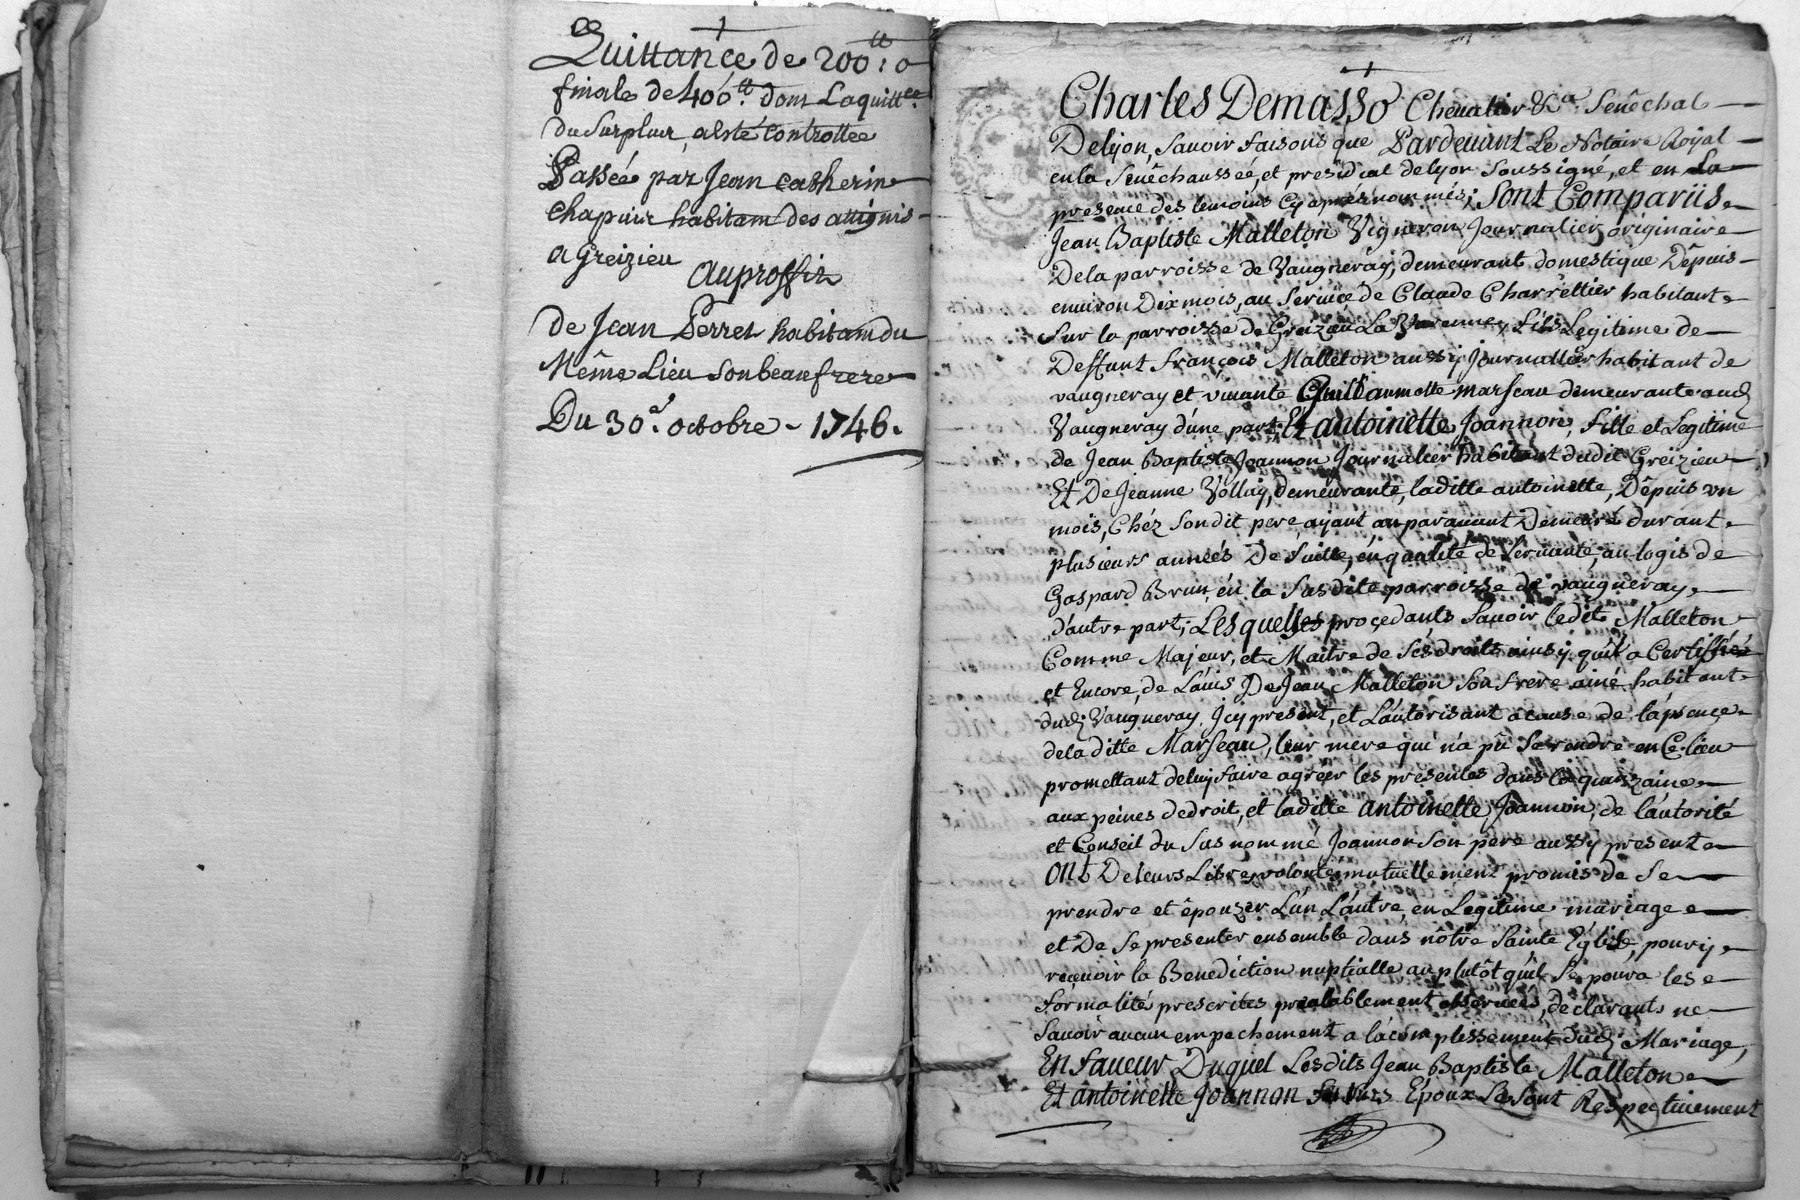 Quittance de 200tt: o
finale de 400tt. dont Laquittce.
du Surplus, a esté Controllée
Passée par Jean Catherin
Chapuis habitant des attignis
a Greizieu
auproffit
de Jean Perret habitant du
Même Lieu Son beaufrere
Du 30e. octobre - 1746.
Charles Demasso Chevalier &ca. Sénéchal
Delyon, Savoir faisons que Pardevant Le Notaire Royal
en la Sénéchaussée, et présidial delyon Soussigné, et en La
presence des temoins Cy aprés nommés; Sont Comparûs
Jean Baptiste Malleton Vigneron Journalier originaire
De la parroisse de Vaugneray, demeurant domestique Dépuis
environ Dix mois, au Service de Claude Charrettier habitant
Sur la parroisse de Greizieu La Varenne, fils Legitime de
Deffunt François Malleton aussy Journallier habitant de
vaugneray et vivante Guillaumette Marseau demeurante aud.
Vaugneray d'une part; Et antoinette Joannon, fille et Legitime
de Jean Baptiste Joannon Journalier habitant dudit Greizieu
Et De Jeanne Vollay, demeurante, laditte antoinette, Dépuis un
mois, Chéz Sondit pere, ayant au paravant Demeuré durant
plusieurs années De Suitte, en qualité de Servante, au logis de
Gaspard Brun, en la Susdite parroisse de vaugneray,
d'autre part; Lesquelles procedants Savoir ledit Malleton
Comme Majeur, et Maitre de Sés droits ainsy quil a Certiffié
et Encore, de L'avis De Jean Malleton Son frere ainé habitant
dud. Vaugneray, Jcy present, et L'autorisant acause de l'absence
dela ditte Marseau, leur mere qui n'a pû Se rendre en Ce lieu
promettant deluy faire agréer les presentes dans la quinzaine
aux peines dedroit, et laditte antoinette Joannon, de l'autorité
et Conseil du Sus nommé Joannon Son pere aussy present
Ont Deleurs Libres volontés mutuellement promis de Se
prendre et épouzer L'un L'autre, en Legitime mariage
et De Se presenter ensemble dans nôtre Sainte Eglise, pour y
reçevoir la Benediction nuptialle au plutôt quil Se poura les
formalités prescrites prealablement observées, declarants ne
Savoir aucun empechement a l'acomplissement dud. Mariage,
En faveur Duquel Lesdits Jean Baptiste Malleton
Et antoinette Joannon futurs Epoux Se Sont Respectivement